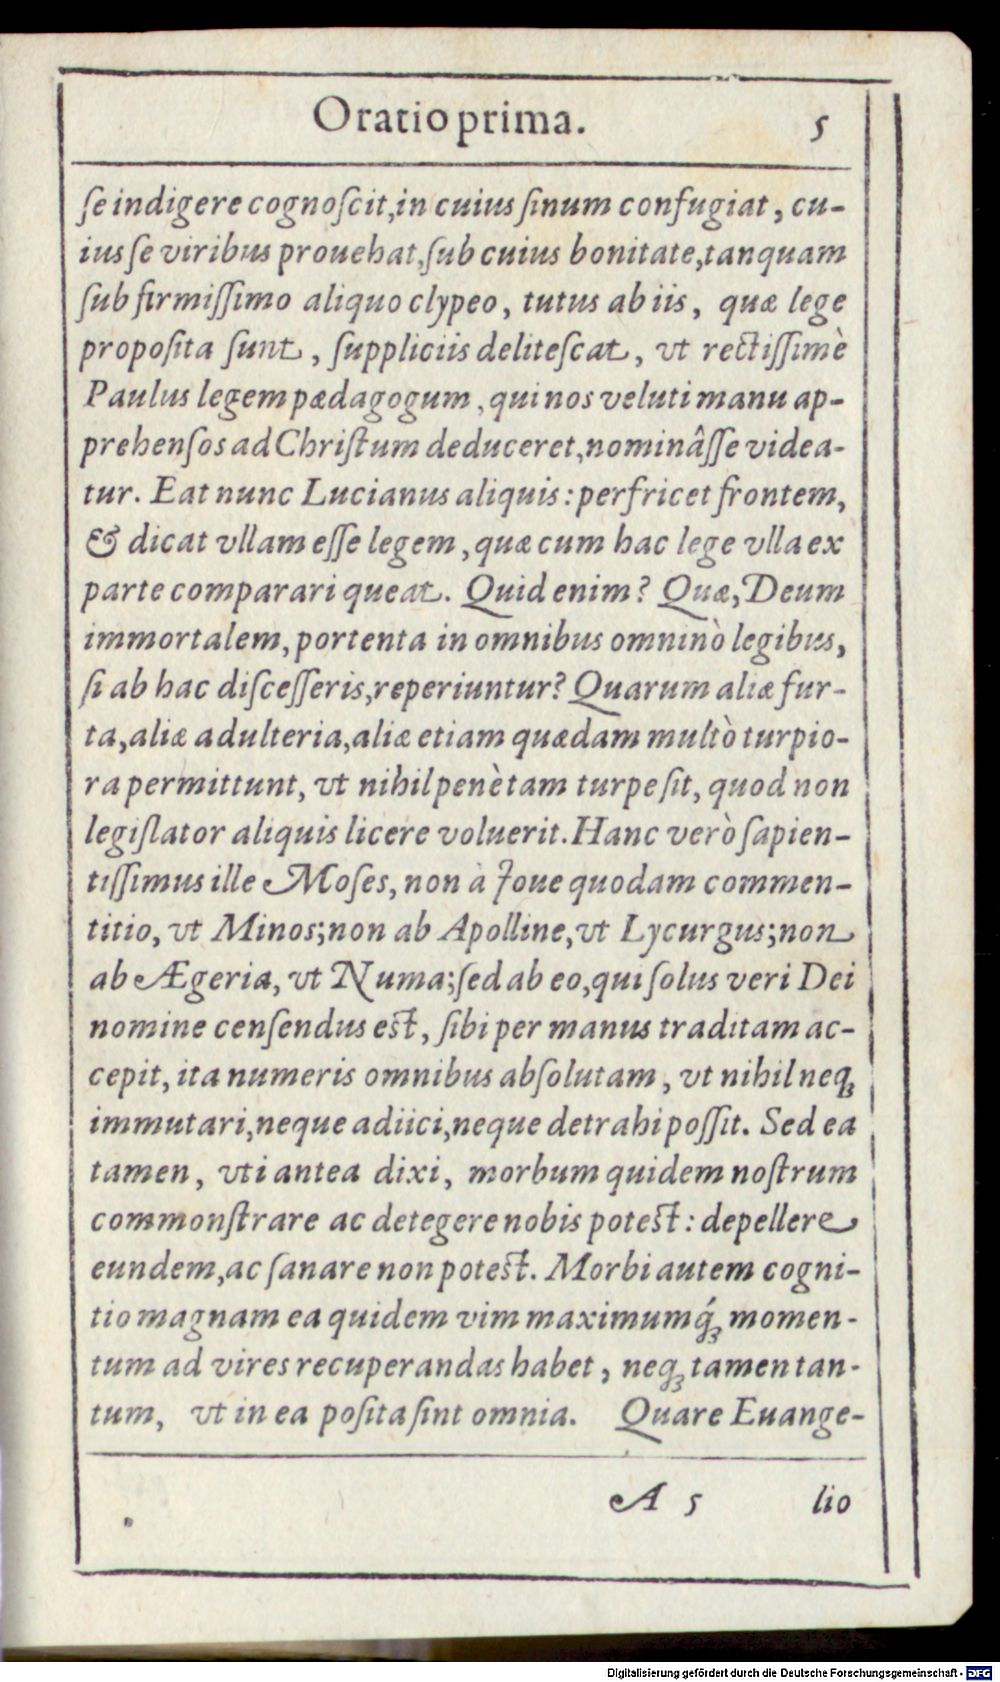 Oratio prima. 5
ſe indigere cognoſcit, in cuius ſinum confugiat, cu-
ius ſe viribus prouehat, ſub cuius bonitate, tanquam
ſub firmiſſimo aliquo clypeo, tutus ab iis, quæ lege
propoſita ſunt, ſuppliciis deliteſcat, vt rectiſſimè
Paulus legem pædagogum, qui nos veluti manu ap-
prehenſos ad Chriſtum deduceret, nominâſſe videa-
tur. Eat nunc Lucianus aliquis: perfricet frontem,
& dicat vllam eſſe legem, quæ cum hac lege vlla ex
parte comparari queat. Quid enim? Quæ, Deum
immortalem, portenta in omnibus omninò legibus,
ſi ab hac diſceſſeris, reperiuntur? Quarum aliæ fur-
ta, aliæ adulteria, aliæ etiam quædam multò turpio-
ra permittunt, vt nihil penè tam turpe ſit, quod non
legiſlator aliquis licere voluerit. Hanc verò ſapien-
tiſſimus ille Moſes, non à Ioue quodam commen-
titio, vt Minos; non ab Apolline, vt Lycurgus; non
ab Ægeria, vt Numa; ſed ab eo, qui ſolus veri Dei
nomine cenſendus eſt, ſibi per manus traditam ac-
cepit, ita numeris omnibus abſolutam, vt nihil neqꝫ
immutari, neque adiici, neque detrahi poſſit. Sed ea
tamen, vti antea dixi, morbum quidem noſtrum
commonſtrare ac detegere nobis poteſt: depellere
eundem, ac ſanare non poteſt. Morbi autem cogni-
tio magnam ea quidem vim maximumq́ꝫ momen-
tum ad vires recuperandas habet, neqꝫ tamen tan-
tum, vt in ea poſita ſint omnia. Quare Euange-
A 5 lio
Digitalisierung gefördert durch die Deutsche Forschungsgemeinschaft - DFG